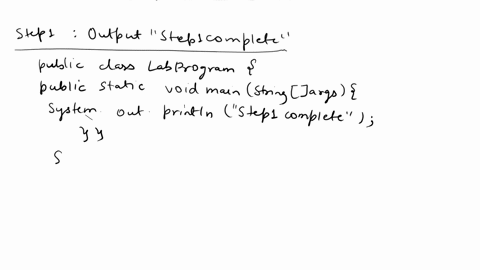 Step1 : Output "Step1complete"
public class LabProgram {
public static void main (String[]args){
System. out. println ("Step1 complete");
}}
S